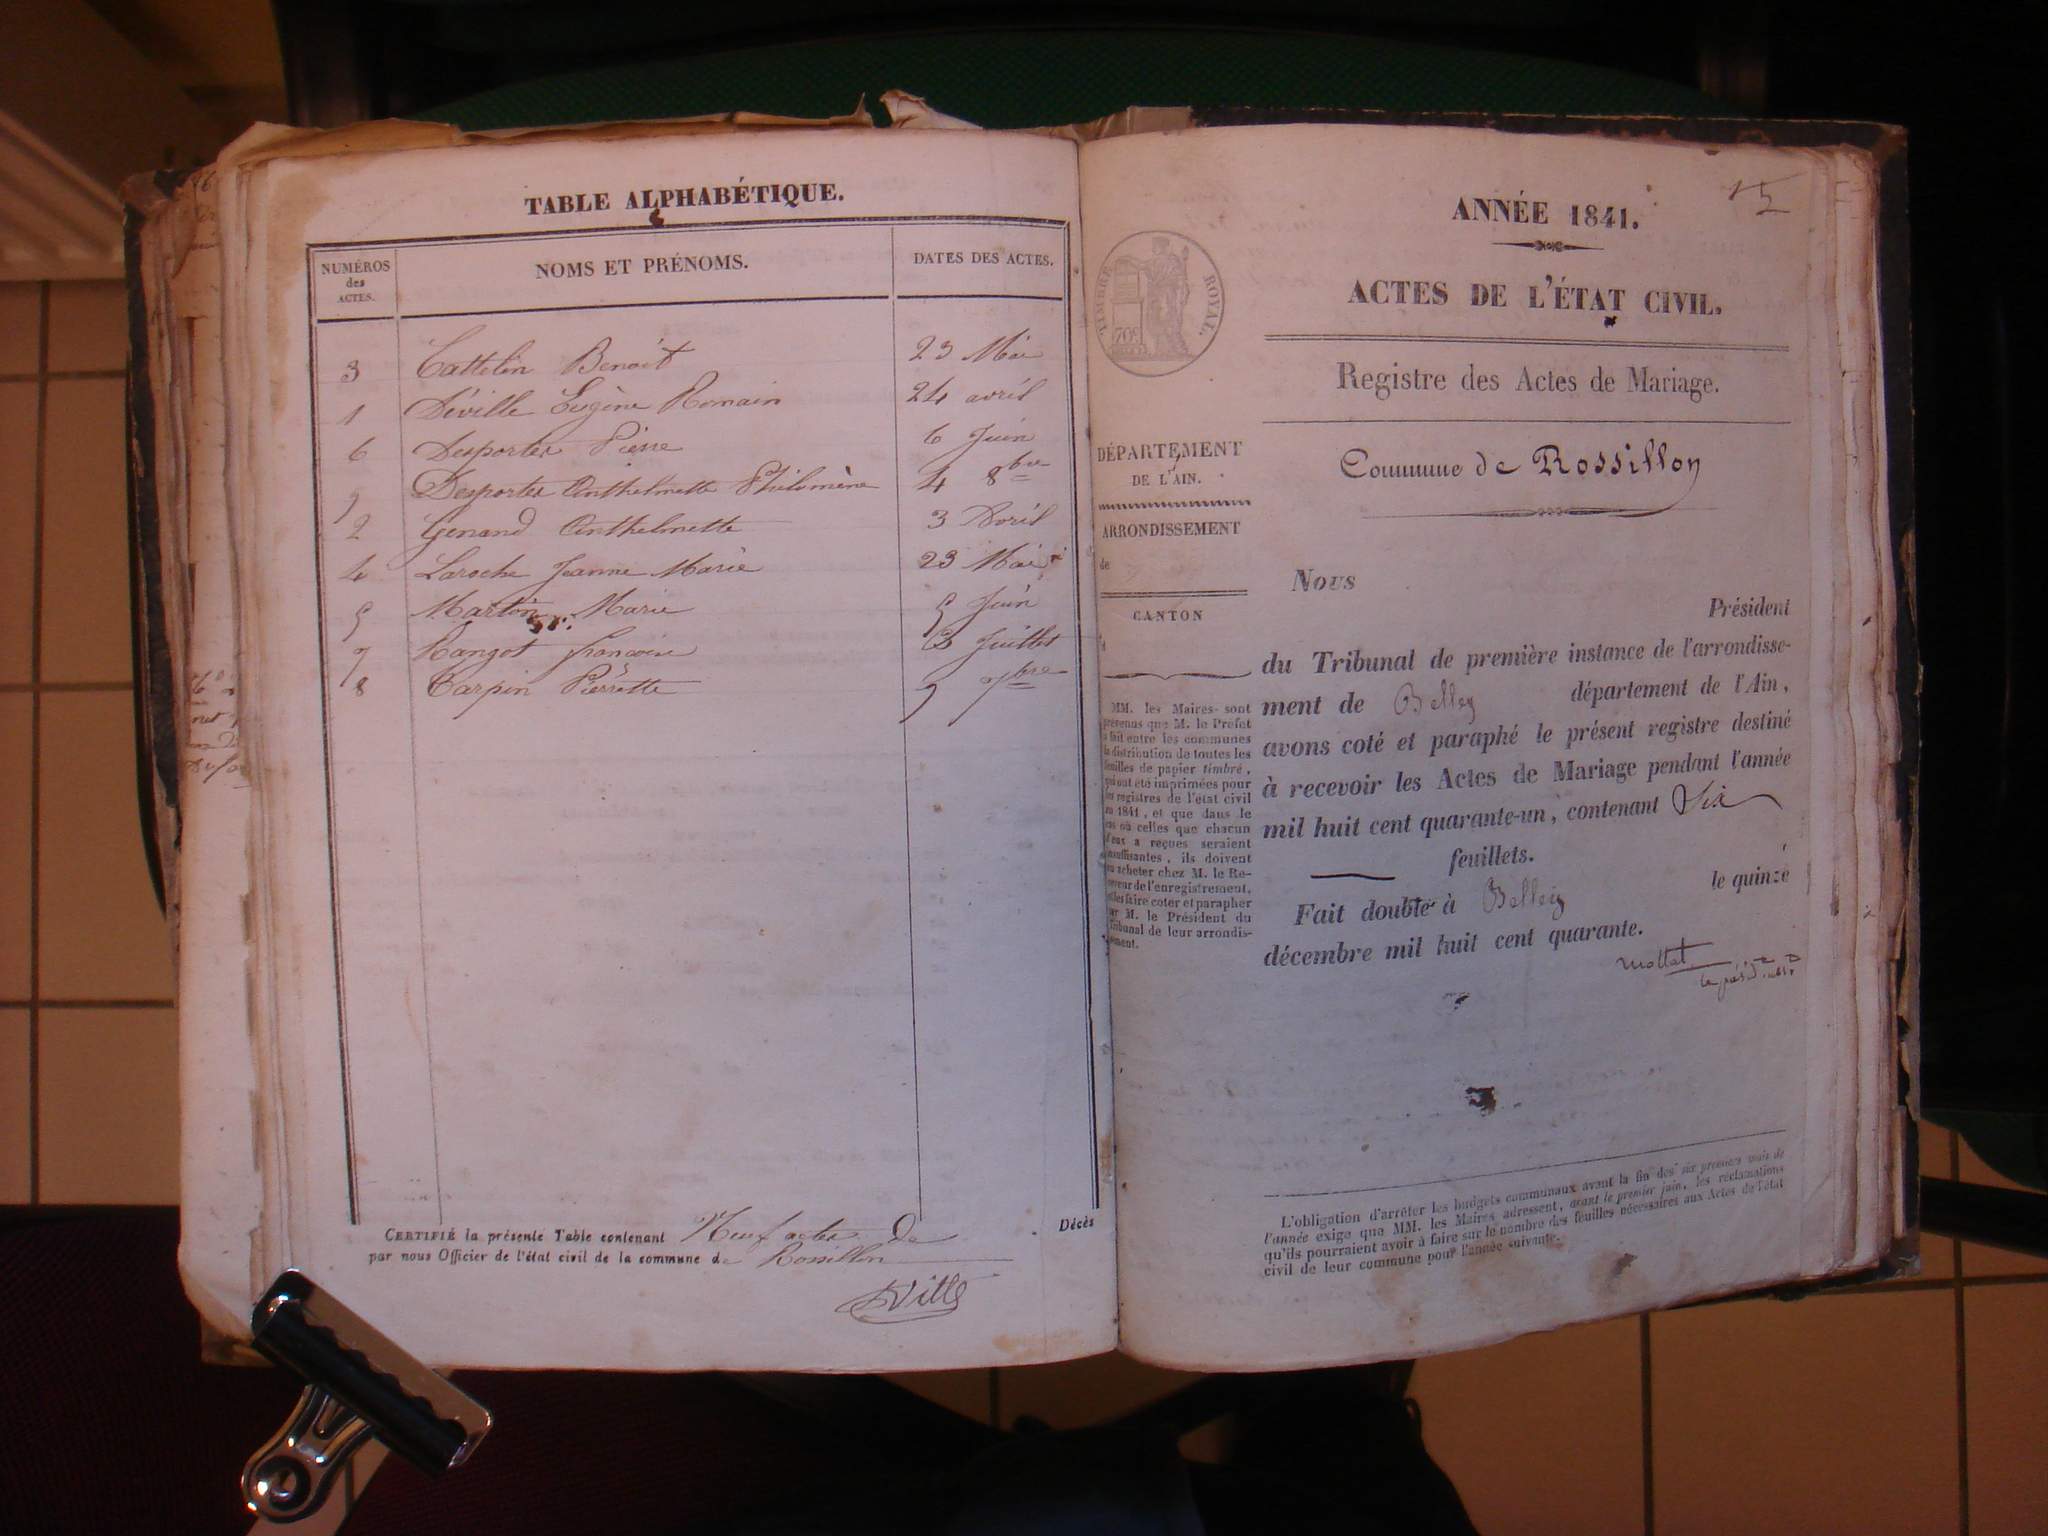 TABLE ALPHABÉTIQUE.
NUMÉROS des ACTES. NOMS ET PRÉNOMS. DATES DES ACTES.
3 Cattelin Benoit 23 Mai
1 Déville Eugène Romain 24 avril
6 Desportes Pierre 6 Juin
9 Desportes Anthelmette Philomène 4 8bre
2 Genand Anthelmette 3 Avril
4 Laroche Jeanne Marie 23 Mai
5 Martin Marie 5 Juin
7 Rangot francoise Juillet
8 Tarpin Pierrette 9 7bre
CERTIFIÉ la présente Table contenant Neuf actes De Décès
par nous Officier de l'état civil de la commune de Rossillon
DVille
15
ANNÉE 1841.
ACTES DE L'ÉTAT CIVIL.
Registre des Actes de Mariage.
Commune de Rossillon
TIMBRE ROYAL.
70c
DÉPARTEMENT
DE L'AIN.
ARRONDISSEMENT
de
CANTON
MM. les Maires sont
prévenus que M. le Préfet
a fait entre les communes
la distribution de toutes les
feuilles de papier timbré,
qui ont été imprimées pour
les registres de l'état civil
en 1841, et que dans le
cas où celles que chacun
d'eux a reçues seraient
insuffisantes, ils doivent
en acheter chez M. le Re-
ceveur de l'enregistrement,
et les faire coter et parapher
par M. le Président du
Tribunal de leur arrondis-
sement.
Nous
Président
du Tribunal de première instance de l'arrondisse-
ment de Belley département de l'Ain,
avons coté et paraphé le présent registre destiné
à recevoir les Actes de Mariage pendant l'année
mil huit cent quarante-un, contenant Six
feuillets.
Fait double à Belley le quinze
décembre mil huit cent quarante.
Mottet
L'obligation d'arrêter les budgets communaux avant la fin des six premiers mois de
l'année exige que MM. les Maires adressent, avant le premier juin, les réclamations
qu'ils pourraient avoir à faire sur le nombre des feuilles nécessaires aux Actes de l'état
civil de leur commune pour l'année suivante.